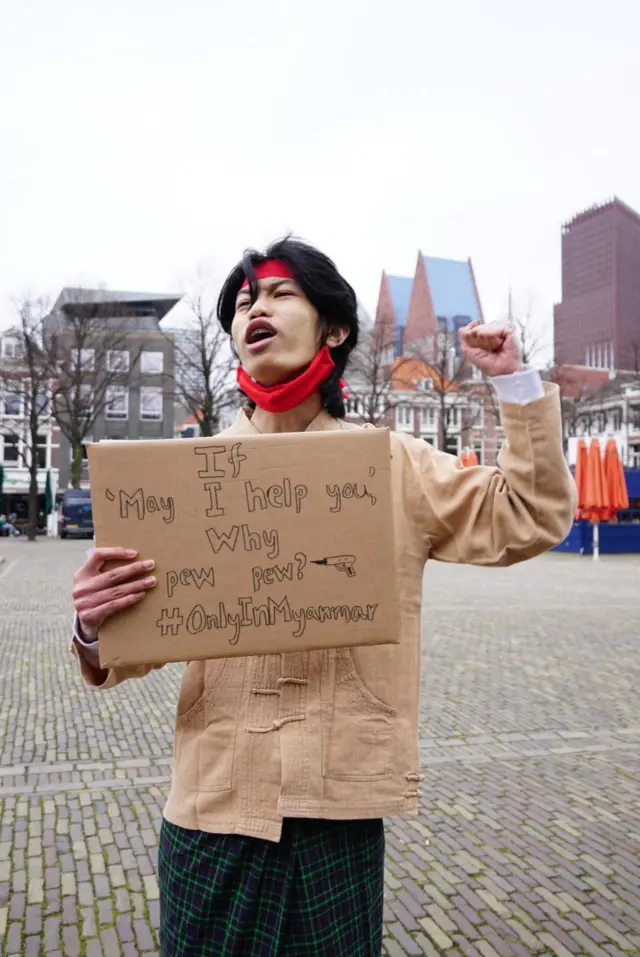 If
'May I help you,'
Why
pew pew?
#OnlyInMyanmar